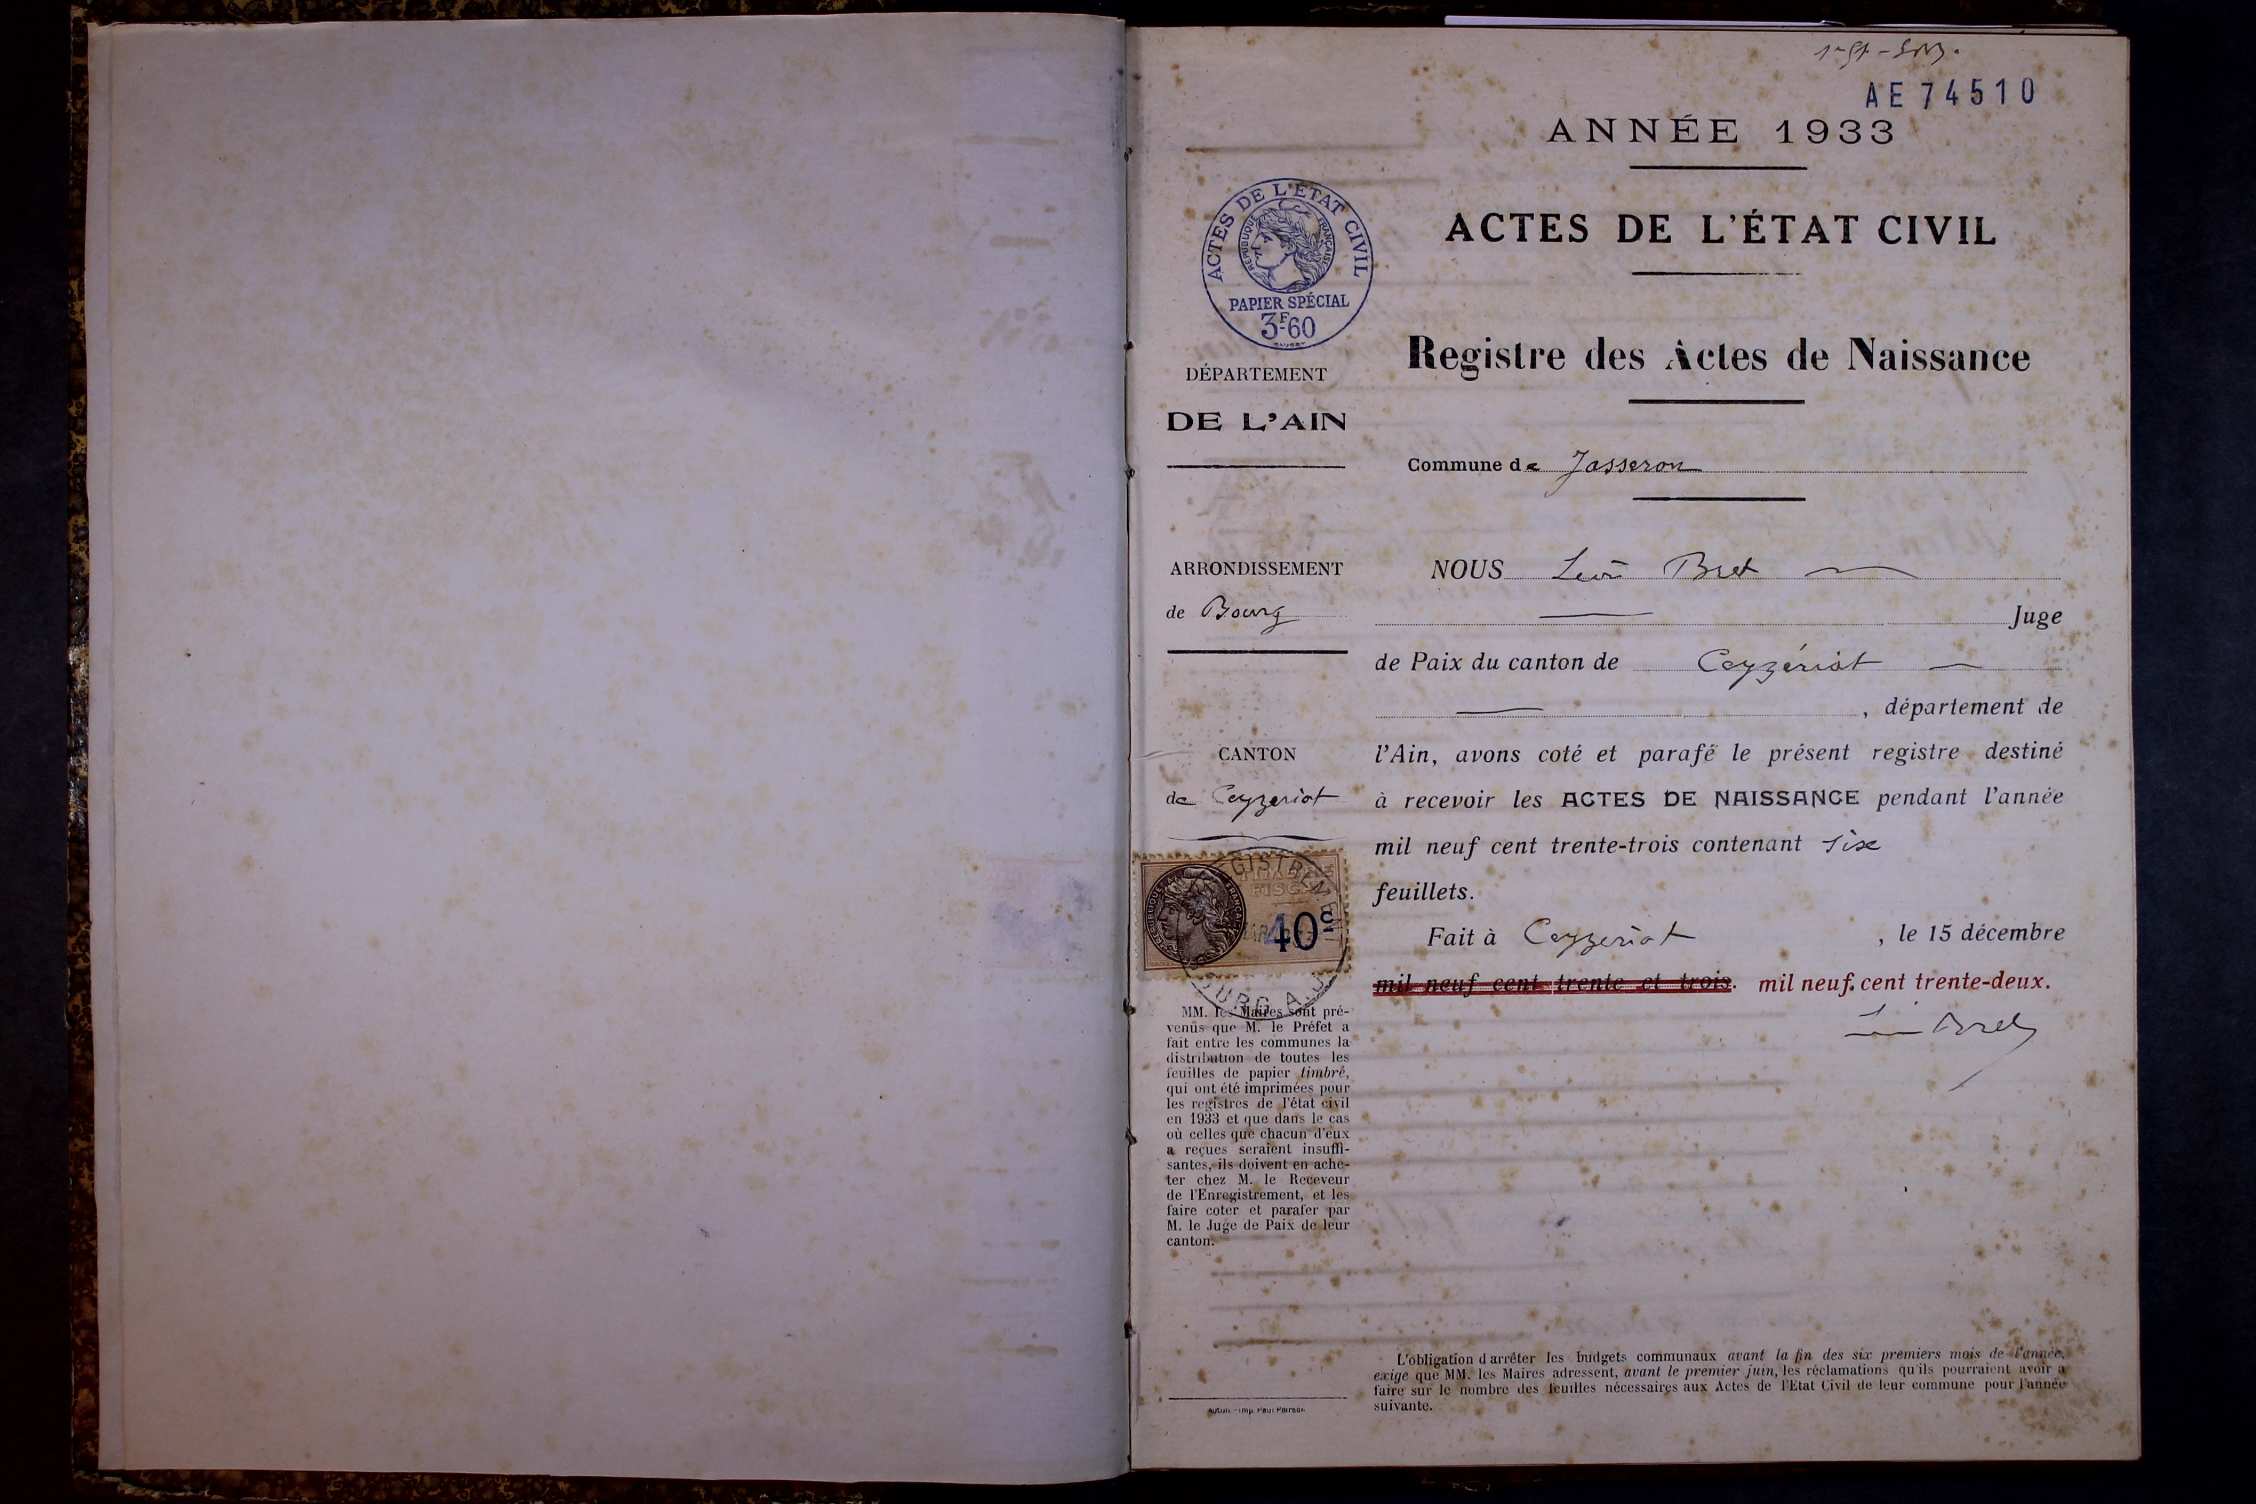 AE 74510
ANNÉE 1933
ACTES DE L'ÉTAT CIVIL
RÉPUBLIQUE FRANÇAISE
PAPIER SPÉCIAL
3F-60
ACTES DE L'ÉTAT CIVIL
Registre des Actes de Naissance
DÉPARTEMENT
DE L'AIN
Commune de Jasseron
ARRONDISSEMENT
de Bourg
CANTON
de Ceyzeriat
NOUS Léon Bret
Juge
de Paix du canton de Ceyzériat
, département de
l'Ain, avons coté et parafé le présent registre destiné
à recevoir les ACTES DE NAISSANCE pendant l'année
mil neuf cent trente-trois contenant six
feuillets.
Fait à Ceyzeriat , le 15 décembre
mil neuf cent trente et trois. mil neuf cent trente-deux.
Léon Bret
40c
MM. les Maires sont pré-
venus que M. le Préfet a
fait entre les communes la
distribution de toutes les
feuilles de papier timbré,
qui ont été imprimées pour
les registres de l'état civil
en 1933 et que dans le cas
où celles que chacun d'eux
a reçues seraient insuffi-
santes, ils doivent en ache-
ter chez M. le Receveur
de l'Enregistrement, et les
faire coter et parafer par
M. le Juge de Paix de leur
canton.
L'obligation d'arrêter les budgets communaux avant la fin des six premiers mois de l'année,
exige que MM. les Maires adressent, avant le premier juin, les réclamations qu'ils pourraient avoir à
faire sur le nombre des feuilles nécessaires aux Actes de l'Etat Civil de leur commune pour l'année
suivante.